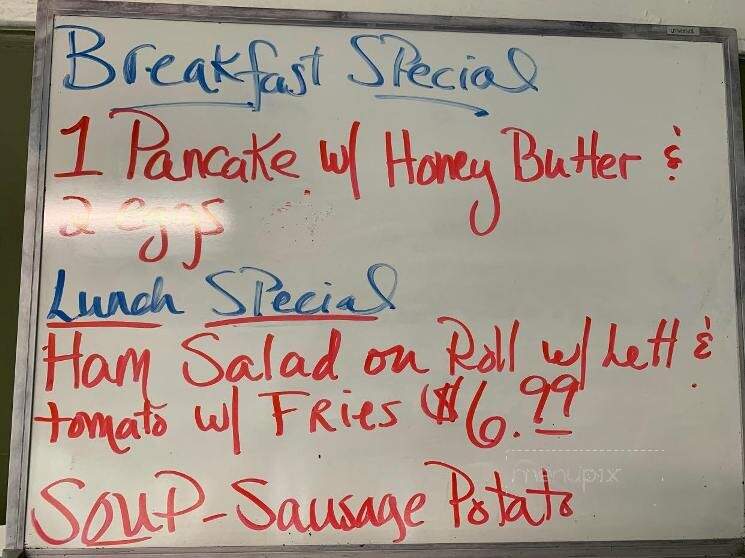 universal
Breakfast Special
1 Pancake w/ Honey Butter &
2 eggs
Lunch Special
Ham Salad on Roll w/ Lett &
tomato w/ FRies $6.99
menupix
SOUP-Sausage Potato